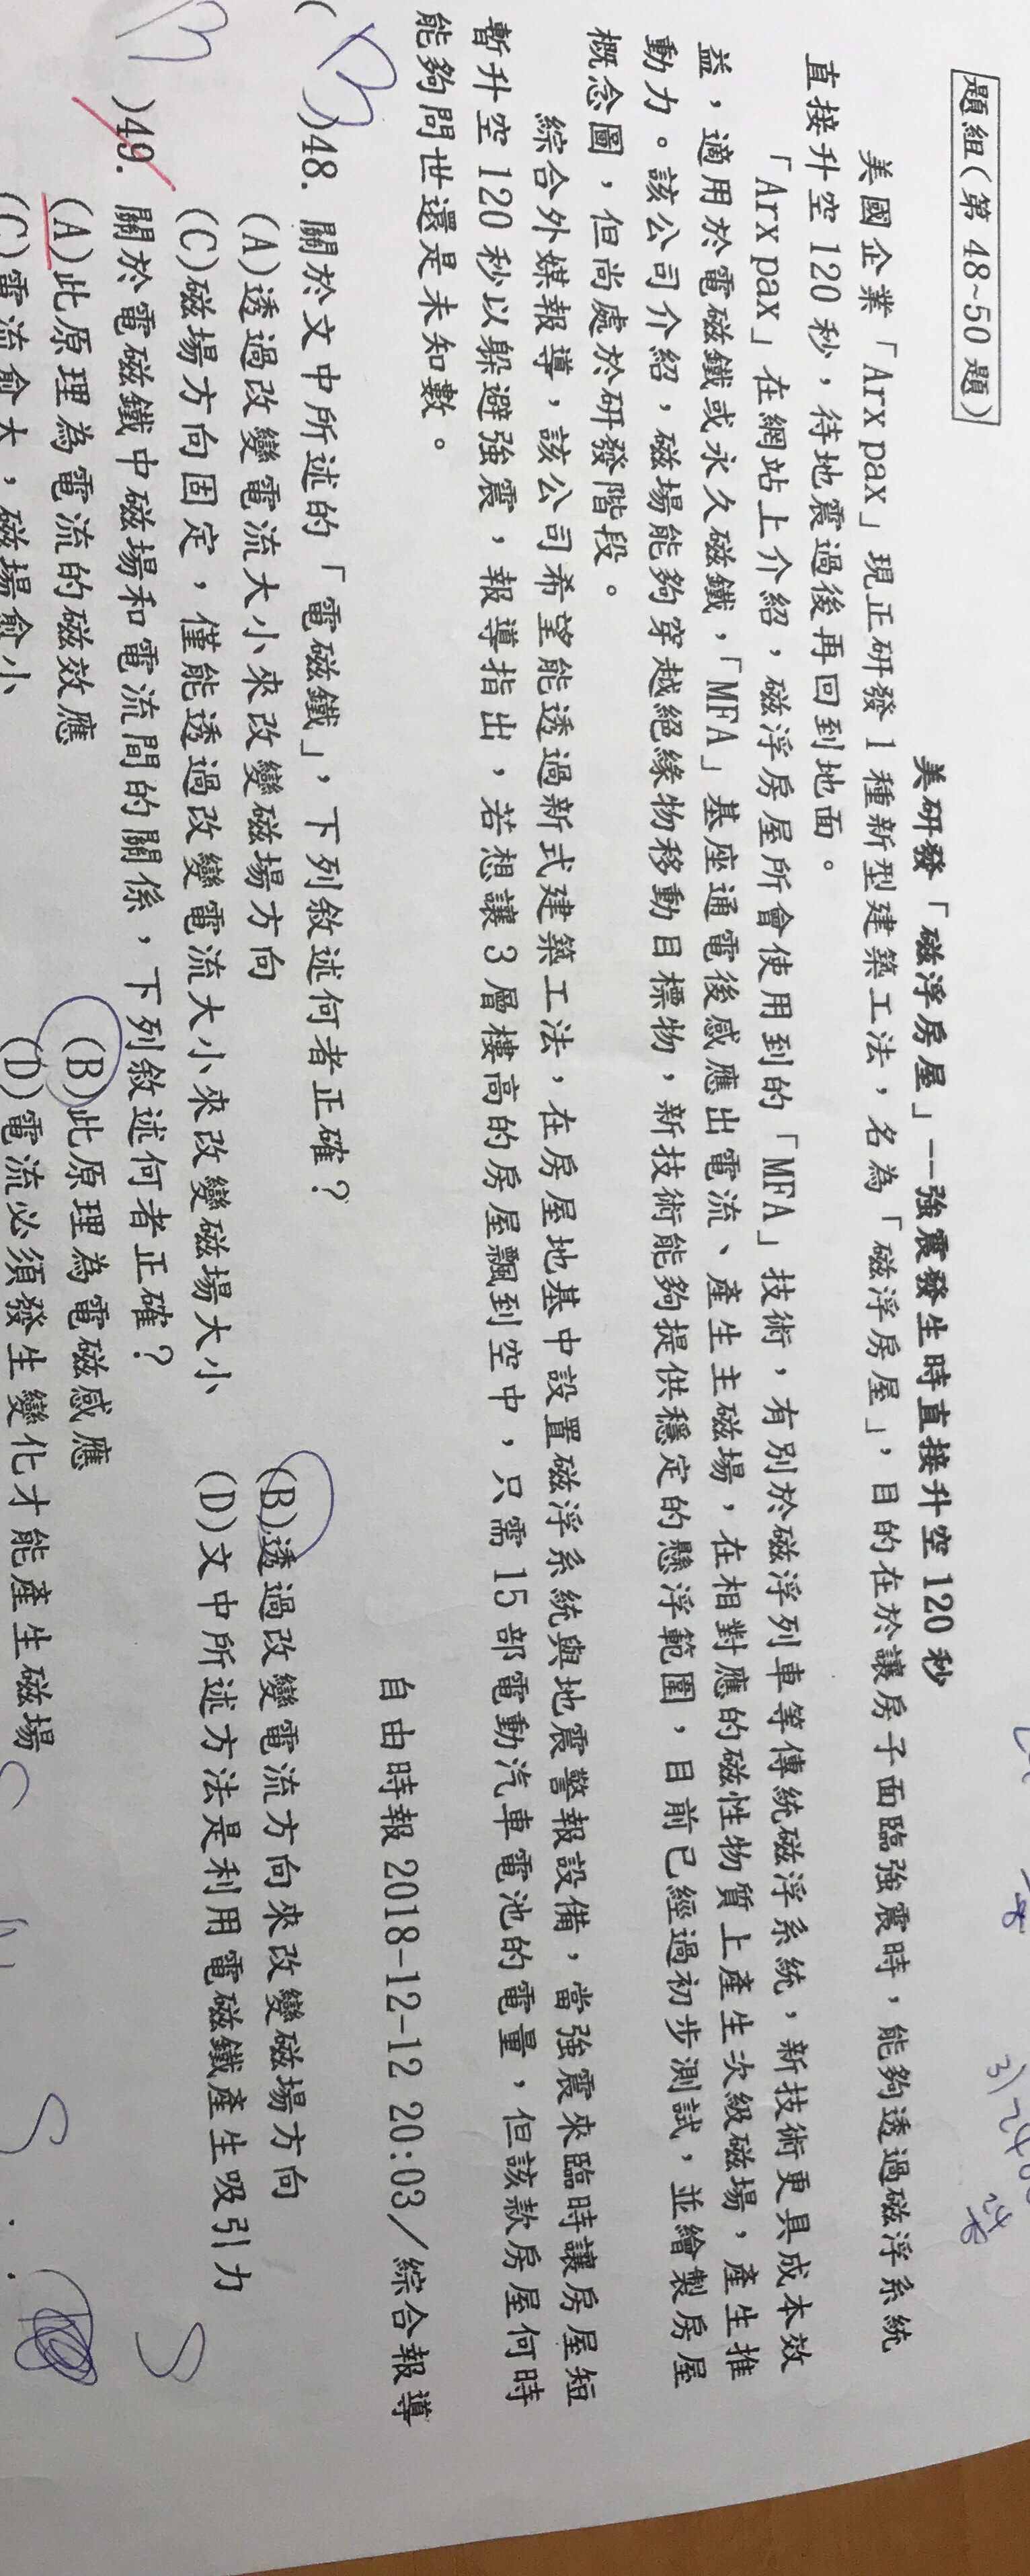 題組(第 48~50 題)
美研發「磁浮房屋」--強震發生時直接升空 120 秒
美國企業「Arx pax」現正研發 1 種新型建築工法，名為「磁浮房屋」，目的在於讓房子面臨強震時，能夠透過磁浮系統
直接升空 120 秒，待地震過後再回到地面。
「Arx pax」在網站上介紹，磁浮房屋所會使用到的「MFA」技術，有別於磁浮列車等傳統磁浮系統，新技術更具成本效
益，適用於電磁鐵或永久磁鐵，「MFA」基座通電後感應出電流、產生主磁場，在相對應的磁性物質上產生次級磁場，產生推
動力。該公司介紹，磁場能夠穿越絕緣物移動目標物，新技術能夠提供穩定的懸浮範圍，目前已經過初步測試，並繪製房屋
概念圖，但尚處於研發階段。
綜合外媒報導，該公司希望能透過新式建築工法，在房屋地基中設置磁浮系統與地震警報設備，當強震來臨時讓房屋短
暫升空 120 秒以躲避強震，報導指出，若想讓 3 層樓高的房屋飄到空中，只需 15 部電動汽車電池的電量，但該款房屋何時
能夠問世還是未知數。
自由時報 2018-12-12 20:03／綜合報導
( B )48. 關於文中所述的「電磁鐵」，下列敘述何者正確？
(A)透過改變電流大小來改變磁場方向 (B)透過改變電流方向來改變磁場方向
(C)磁場方向固定，僅能透過改變電流大小來改變磁場大小 (D)文中所述方法是利用電磁鐵產生吸引力
B )49. 關於電磁鐵中磁場和電流間的關係，下列敘述何者正確？
(A)此原理為電流的磁效應 (B)此原理為電磁感應
(C)電流愈大，磁場愈小 (D)電流必須發生變化才能產生磁場